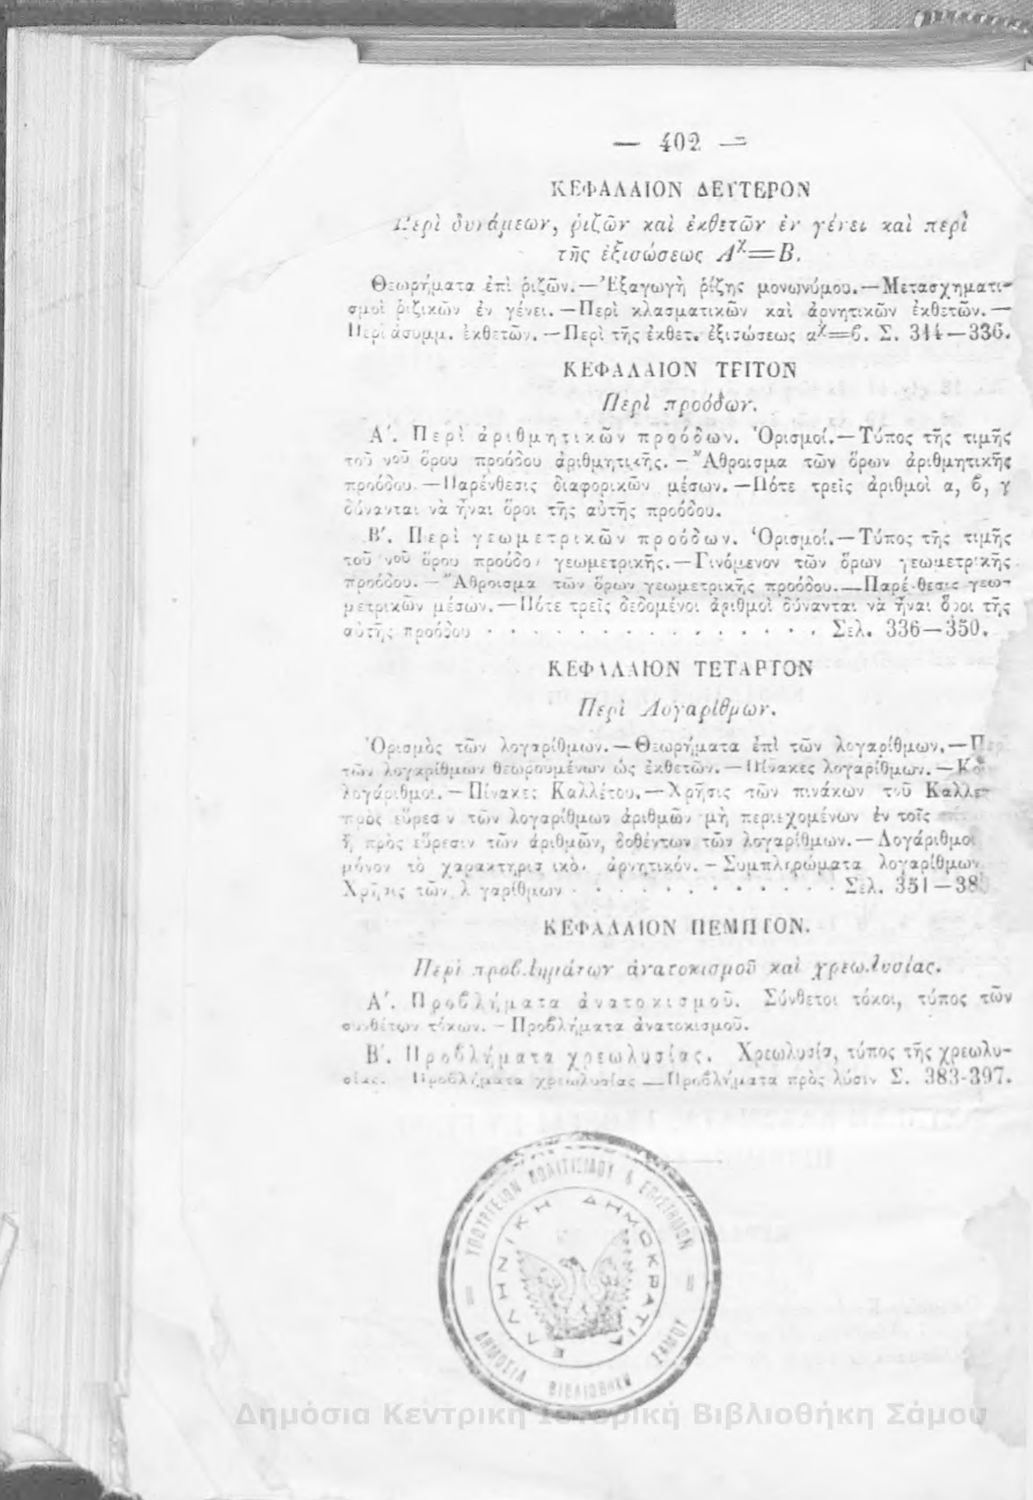 — 402 —
ΚΕΦΑΛΑΙΟΝ ΔΕΥΤΕΡΟΝ
Περὶ δυνάμεων, ῥιζῶν καὶ ἐκθετῶν ἐν γένει καὶ περὶ
τῆς ἐξισώσεως Αχ=Β.
Θεωρήματα ἐπὶ ῥιζῶν.—Ἐξαγωγὴ ῥίζης μονωνύμου.—Μετασχηματι-
σμοὶ ῥιζικῶν ἐν γένει.—Περὶ κλασματικῶν καὶ ἀρνητικῶν ἐκθετῶν.—
Περὶ ἀσυμμ. ἐκθετῶν.—Περὶ τῆς ἐκθετ. ἐξισώσεως αχ=β. Σ. 314—336.
ΚΕΦΑΛΑΙΟΝ ΤΡΙΤΟΝ
Περὶ προόδων.
Α΄. Περὶ ἀριθμητικῶν προόδων. Ὁρισμοί.—Τύπος τῆς τιμῆς
τοῦ νοῦ ὅρου προόδου ἀριθμητικῆς.—Ἄθροισμα τῶν ὅρων ἀριθμητικῆς
προόδου.—Παρένθεσις διαφορικῶν μέσων.—Πότε τρεῖς ἀριθμοὶ α, β, γ
δύνανται νὰ ἦναι ὅροι τῆς αὐτῆς προόδου.
Β΄. Περὶ γεωμετρικῶν προόδων. Ὁρισμοί.—Τύπος τῆς τιμῆς
τοῦ νοῦ ὅρου προόδου γεωμετρικῆς.—Γινόμενον τῶν ὅρων γεωμετρικῆς
προόδου.—Ἄθροισμα τῶν ὅρων γεωμετρικῆς προόδου.—Παρένθεσις γεω-
μετρικῶν μέσων.—Πότε τρεῖς δεδομένοι ἀριθμοὶ δύνανται νὰ ἦναι ὅροι τῆς
αὐτῆς προόδου . . . . . . . . . . . . . . . Σελ. 336—350.
ΚΕΦΑΛΑΙΟΝ ΤΕΤΑΡΤΟΝ
Περὶ Λογαρίθμων.
Ὁρισμὸς τῶν λογαρίθμων.—Θεωρήματα ἐπὶ τῶν λογαρίθμων.—
τῶν λογαρίθμων θεωρουμένων ὡς ἐκθετῶν.—Πίνακες λογαρίθμων.—
λογάριθμοι.—Πίνακες Καλλέτου.—Χρῆσις τῶν πινάκων τοῦ Καλλε-
πρὸς εὕρεσιν τῶν λογαρίθμων ἀριθμῶν μὴ περιεχομένων ἐν τοῖς
ἢ πρὸς εὕρεσιν τῶν ἀριθμῶν, δοθέντων τῶν λογαρίθμων.—Λογάριθμοι
μόνον τὸ χαρακτηριστικὸν ἀρνητικόν.—Συμπληρώματα λογαρίθμων
Χρῆσις τῶν λογαρίθμων . . . . . . . . . . . . Σελ. 351—38
ΚΕΦΑΛΑΙΟΝ ΠΕΜΠΤΟΝ.
Περὶ προβλημάτων ἀνατοκισμοῦ καὶ χρεωλυσίας.
Α΄. Προβλήματα ἀνατοκισμοῦ. Σύνθετοι τόκοι, τύπος τῶν
συνθέτων τόκων.—Προβλήματα ἀνατοκισμοῦ.
Β΄. Προβλήματα χρεωλυσίας. Χρεωλυσία, τύπος τῆς χρεωλυ-
σίας. Προβλήματα χρεωλυσίας—Προβλήματα πρὸς λύσιν Σ. 383-397.
ΥΠΟΥΡΓΕΙΟΝ ΠΟΛΙΤΙΣΜΟΥ & ΕΠΙΣΤΗΜΩΝ
ΕΛΛΗΝΙΚΗ ΔΗΜΟΚΡΑΤΙΑ
ΔΗΜΟΣΙΑ ΒΙΒΛΙΟΘΗΚΗ ΣΑΜΟΥ
Δημόσια Κεντρική Ιστορική Βιβλιοθήκη Σάμου